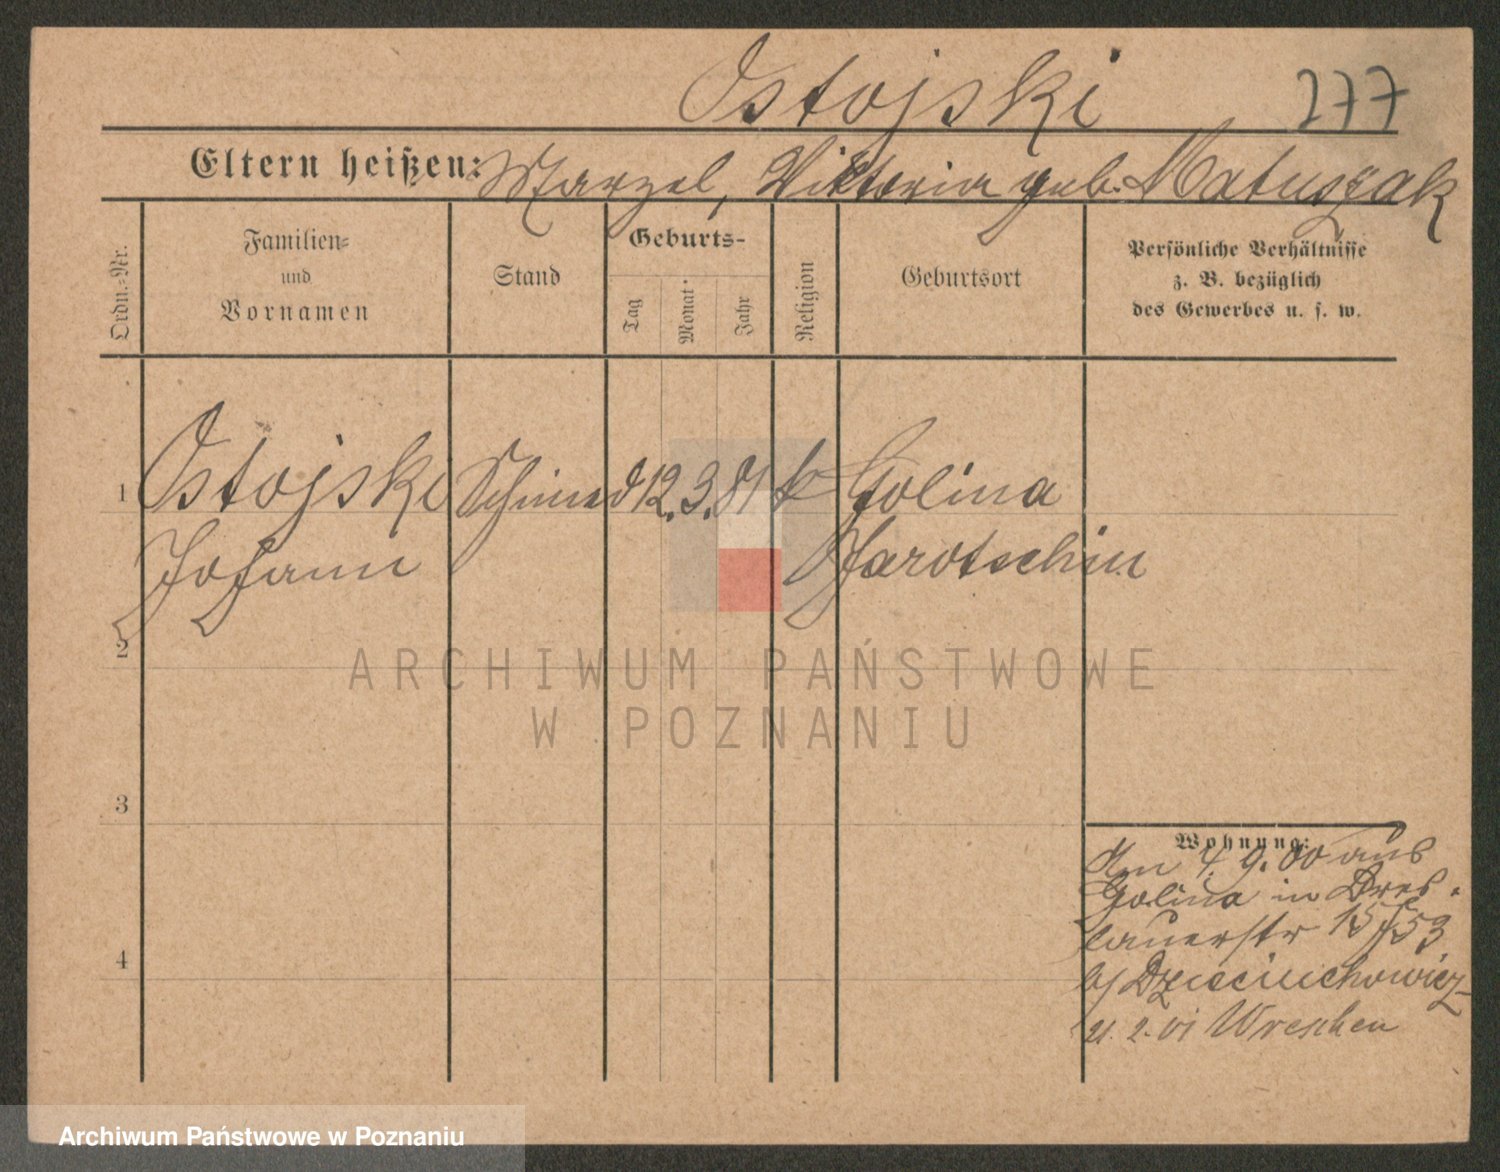 Ostojski 277
Eltern heißen: Marzel, Viktoria geb. Matuszak
Ordn.-Nr.
Familien-
und
Vornamen
Stand
Geburts-
Tag
Monat
Jahr
Religion
Geburtsort
Persönliche Verhältnisse
z. B. bezüglich
des Gewerbes u. s. w.
1 Ostojski Schmied 12. 3. 81 k Golina
Johann Jarotschin
2
ARCHIWUM PAŃSTWOWE
W POZNANIU
3
Wohnung:
Am 4. 9. 00 aus
Golina in Bres-
lauerstr 15/53
b/ Dzieciuchowicz
21. 2. 01 Wreschen
4
Archiwum Państwowe w Poznaniu